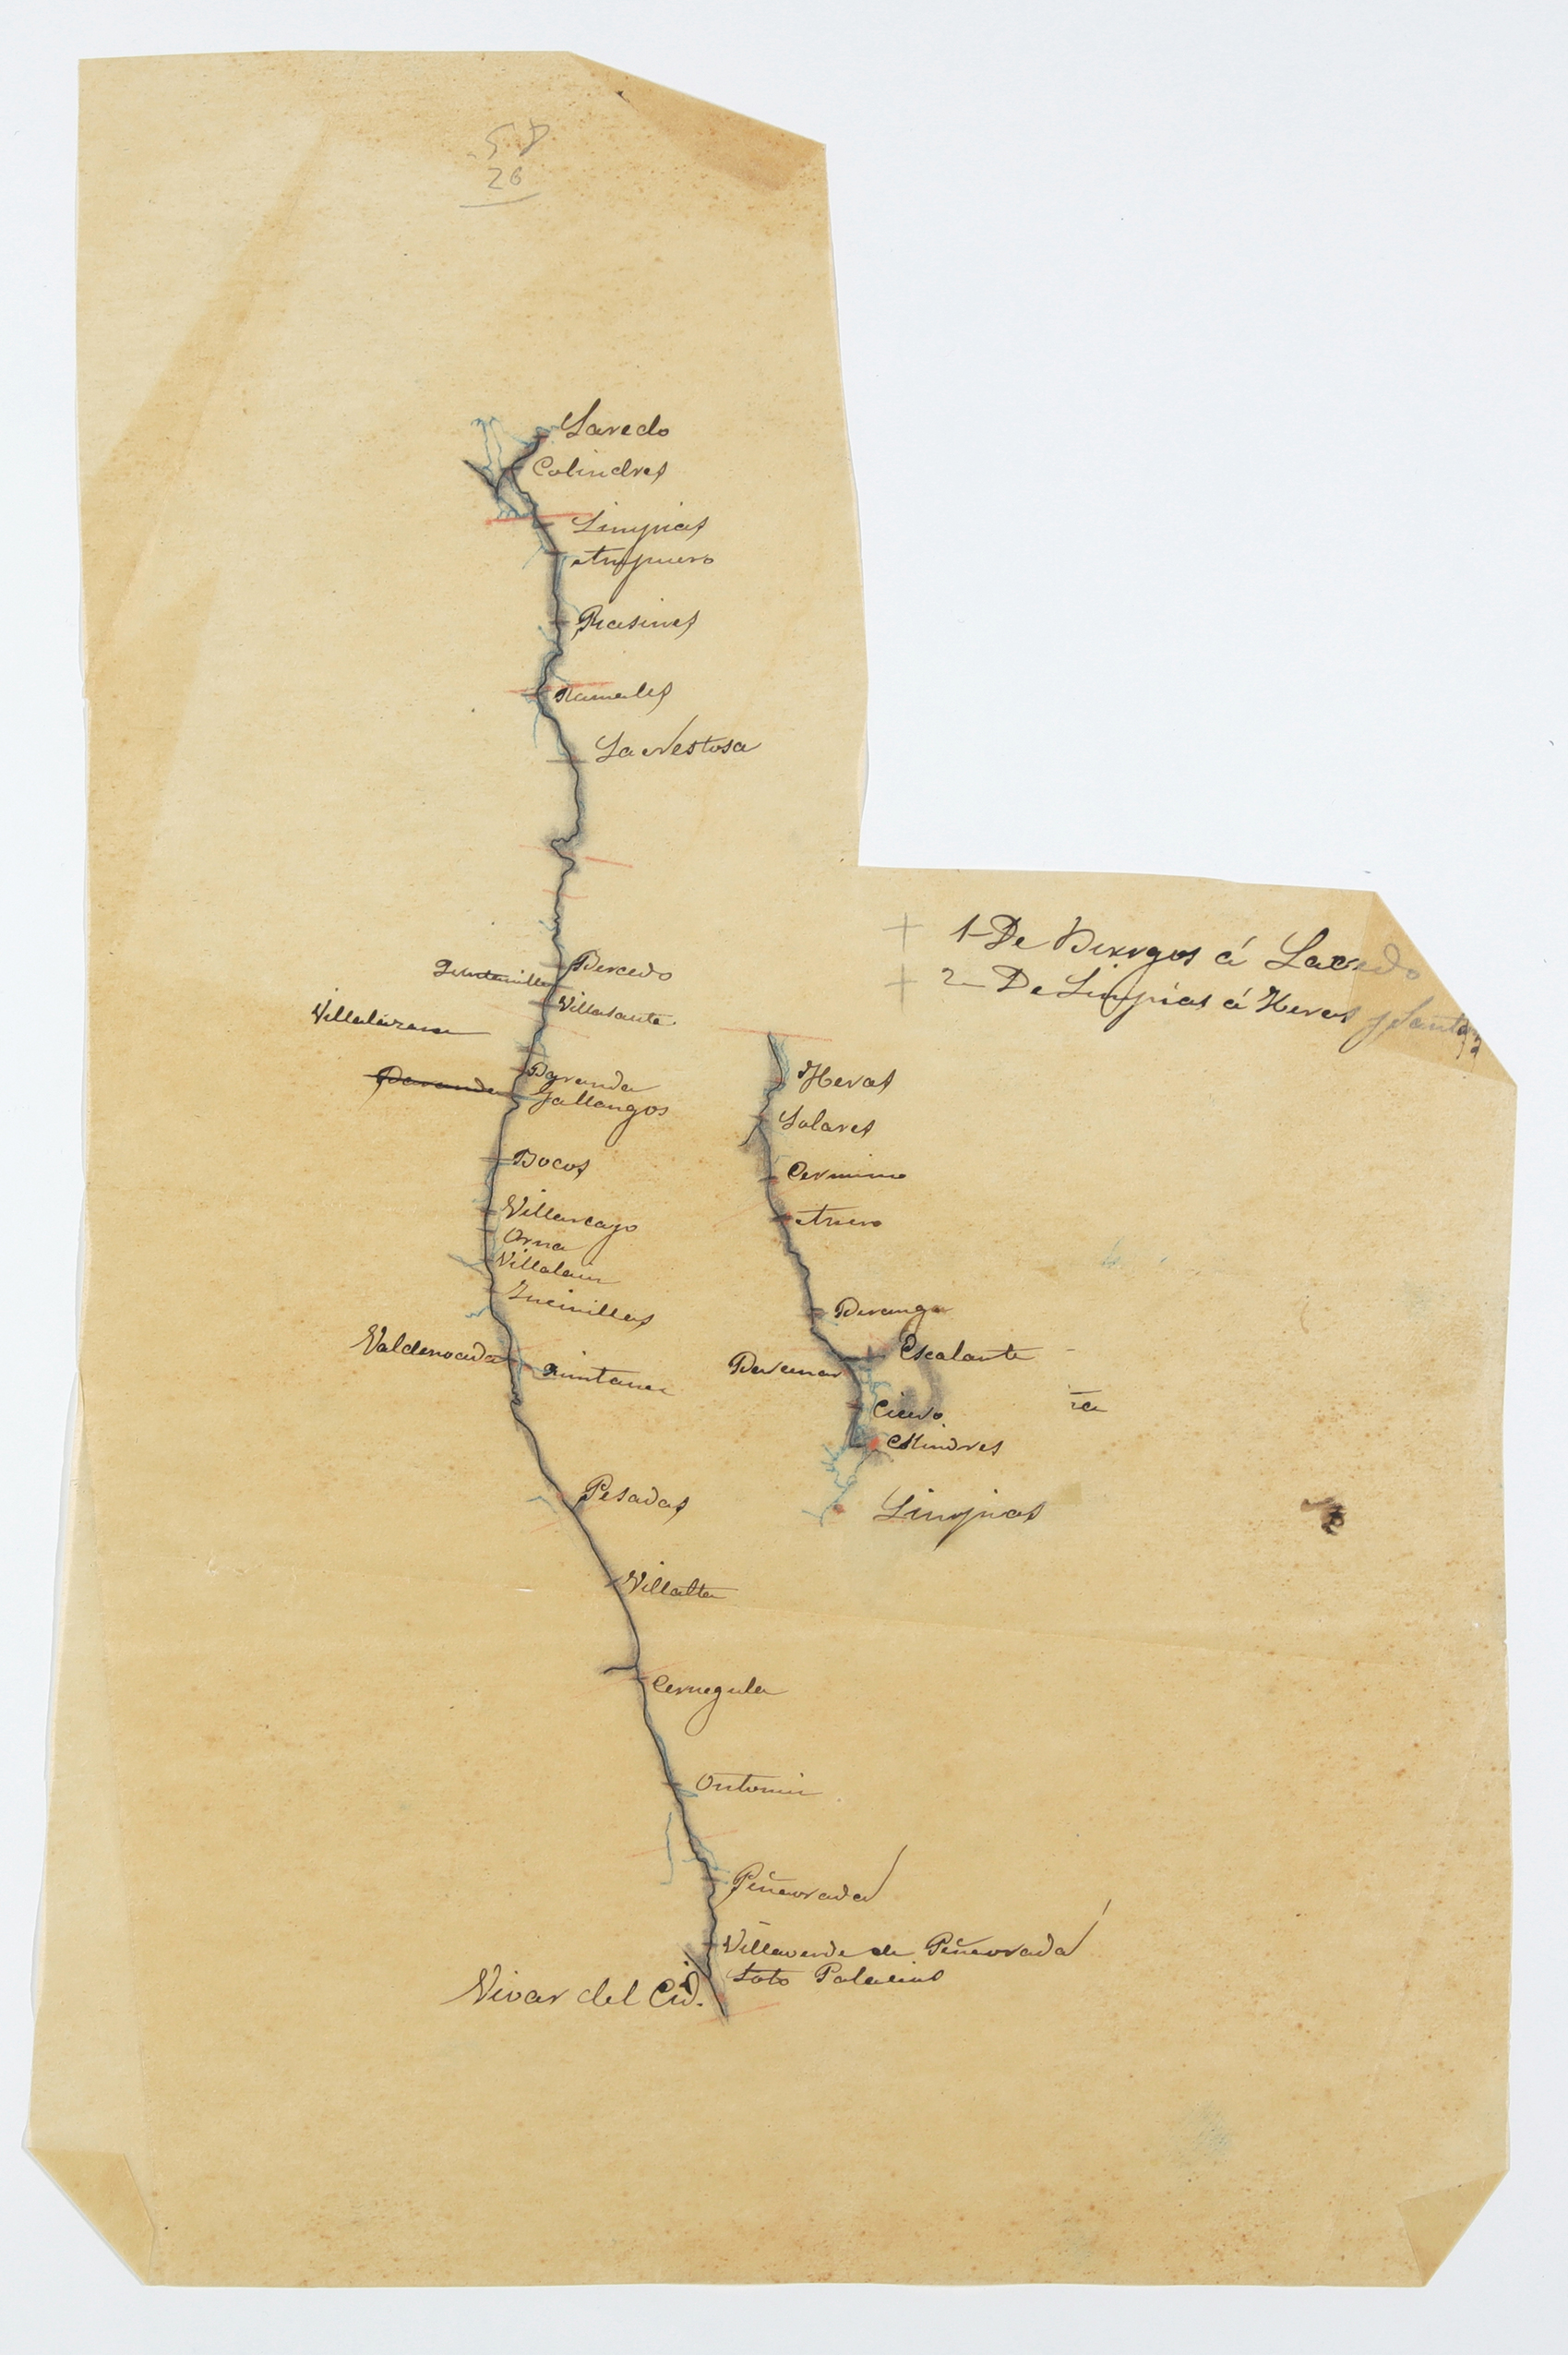 58
26
Laredo
Colindres
Limpias
Ampuero
Rasines
Ramales
La Nestosa
1- De Burgos á Laredo
2- De Limpias á Heras y Santa
Bercedo
Quintanilla
Villasante
Villalázara
Baranda
Baranda
Gallangos
Bocos
Villarcayo
Orna
Villalain
Incinillas
Valdenoceda
Quintana
Pesadas
Villalta
Cernegula
Ontomin
Peñaorada
Villaverde de Peñaorada
Soto Palacios
Vivar del Cid.
Heras
Solares
Cermino
Anero
Beranga
Escalante
Barcenar
Cicero
Colindres
Limpias